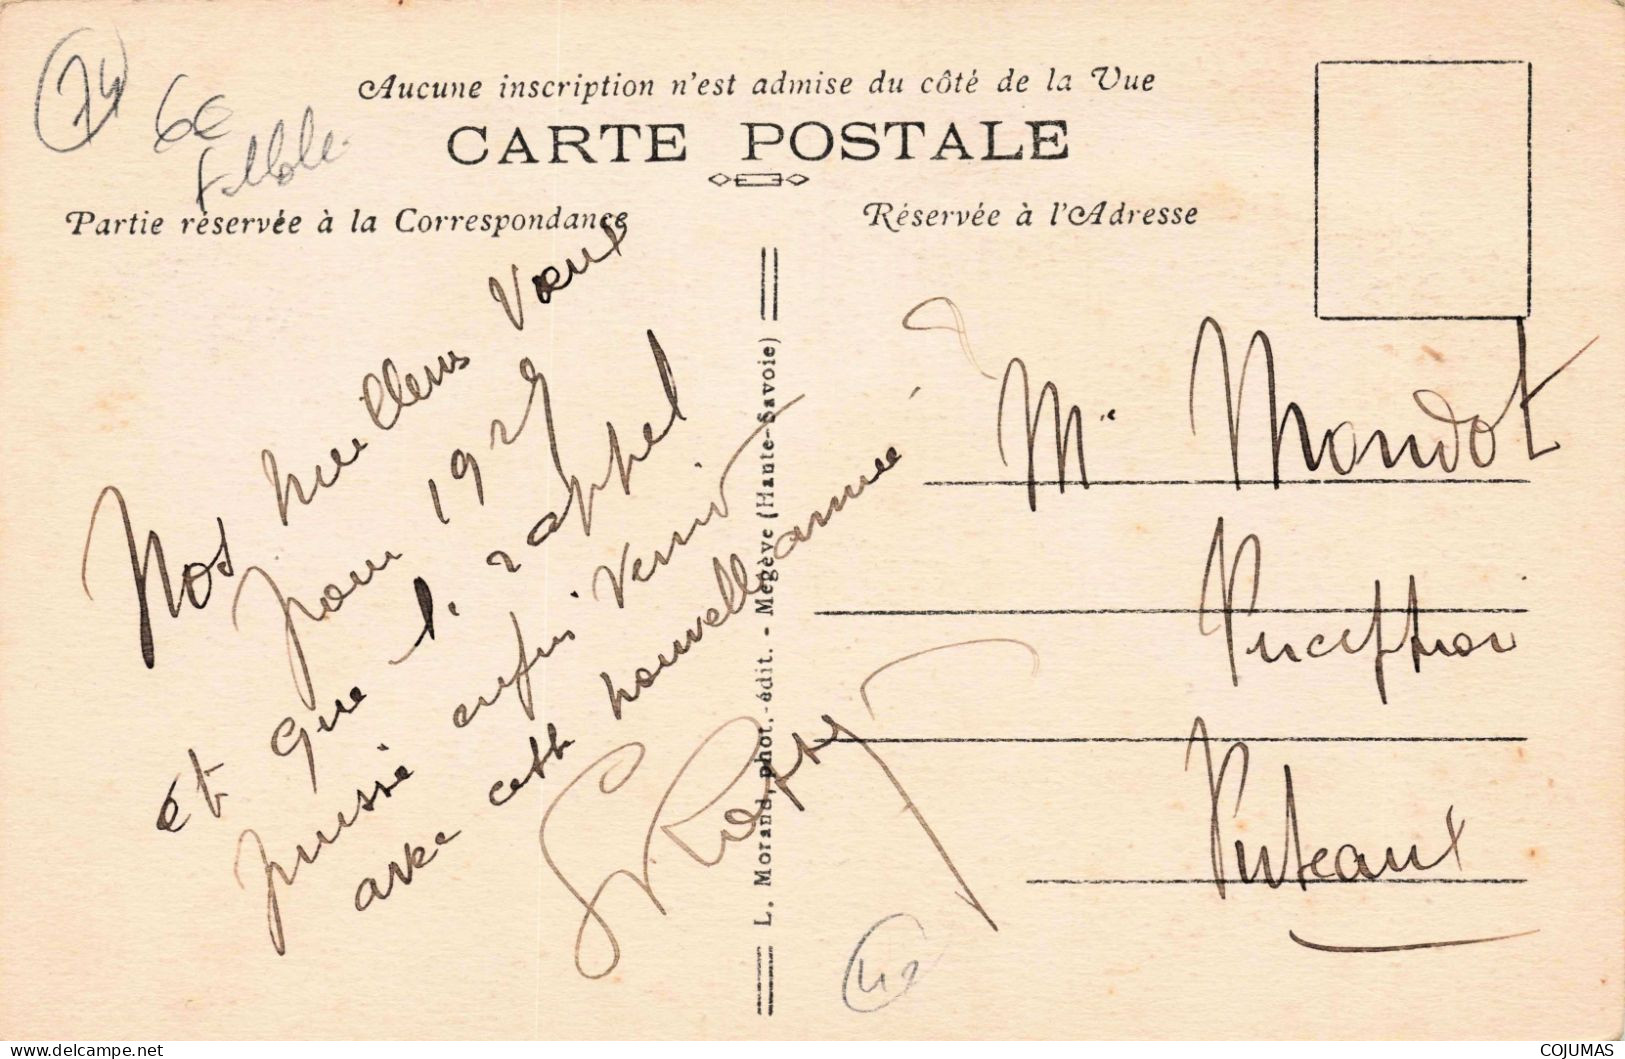 74
6€
Aucune inscription n'est admise du côté de la Vue
CARTE POSTALE
Partie réservée à la Correspondance
Réservée à l'Adresse
Nos meilleurs Vœux
pour 192
et que le rappel
puisse enfin venir
avec cette nouvelle année
L. Morand, phot.-édit. - Megève (Haute-Savoie)
Mr Mondot
Perception
Puteaux
42
delcampe.net
COJUMAS